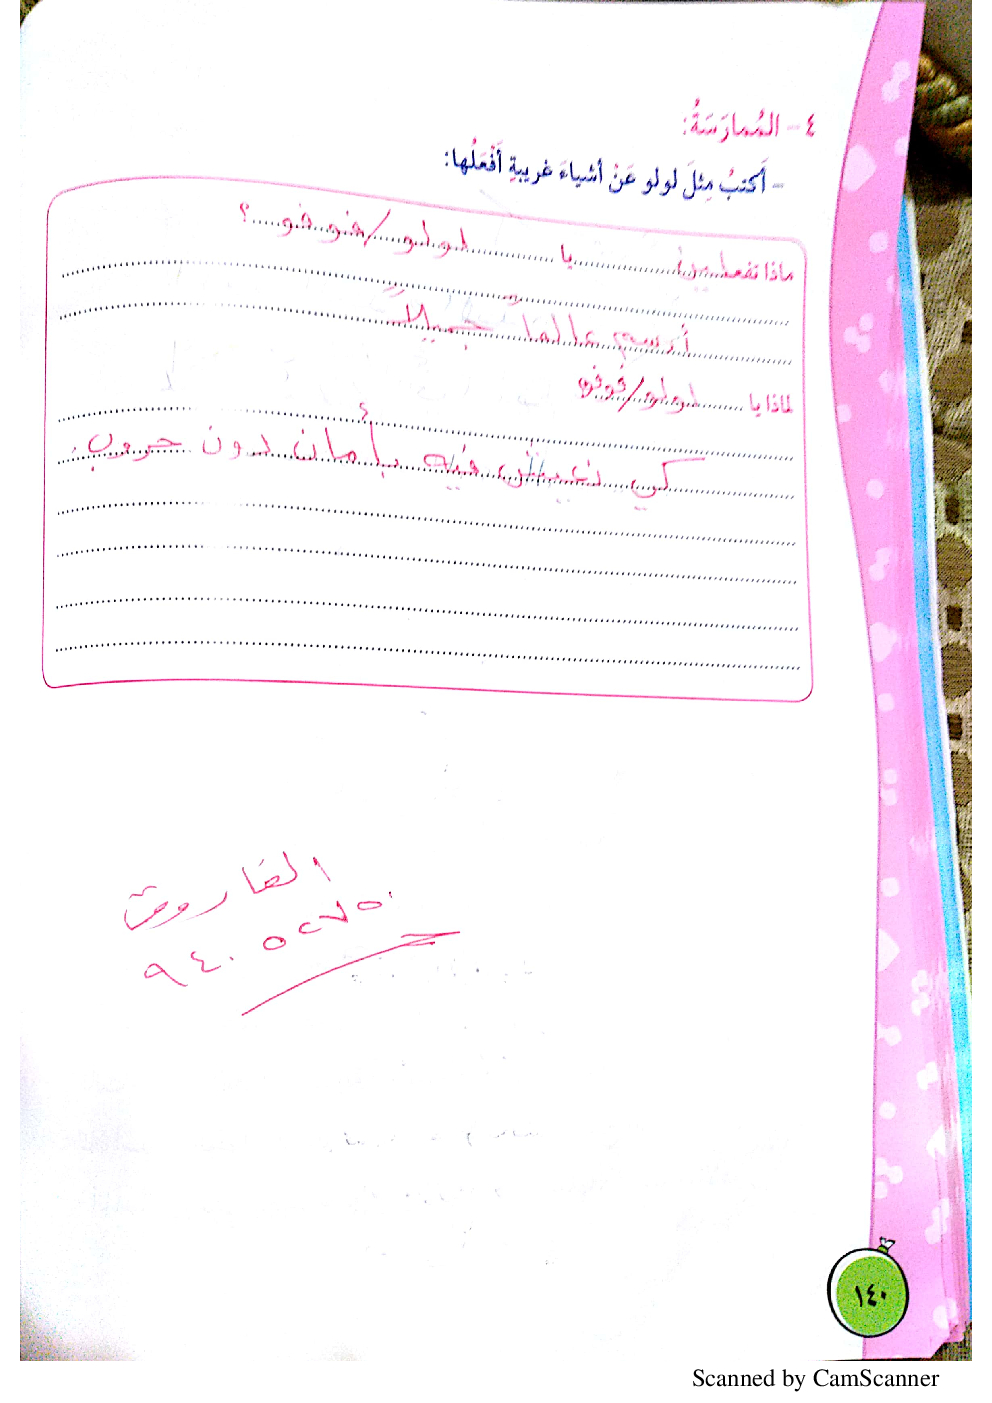 ٤ - المُمارَسَةُ:
- أَكتبُ مِثلَ لولو عَنْ أشياءَ غريبةٍ أَفْعَلُها:
ماذا تفعلين يا لولو/فوفو؟
أرسم عالماً جميلاً
لماذا يا لولو/فوفو
كي نعيش فيه بأمان بدون حروب.
الفاروق
١٤٠
Scanned by CamScanner